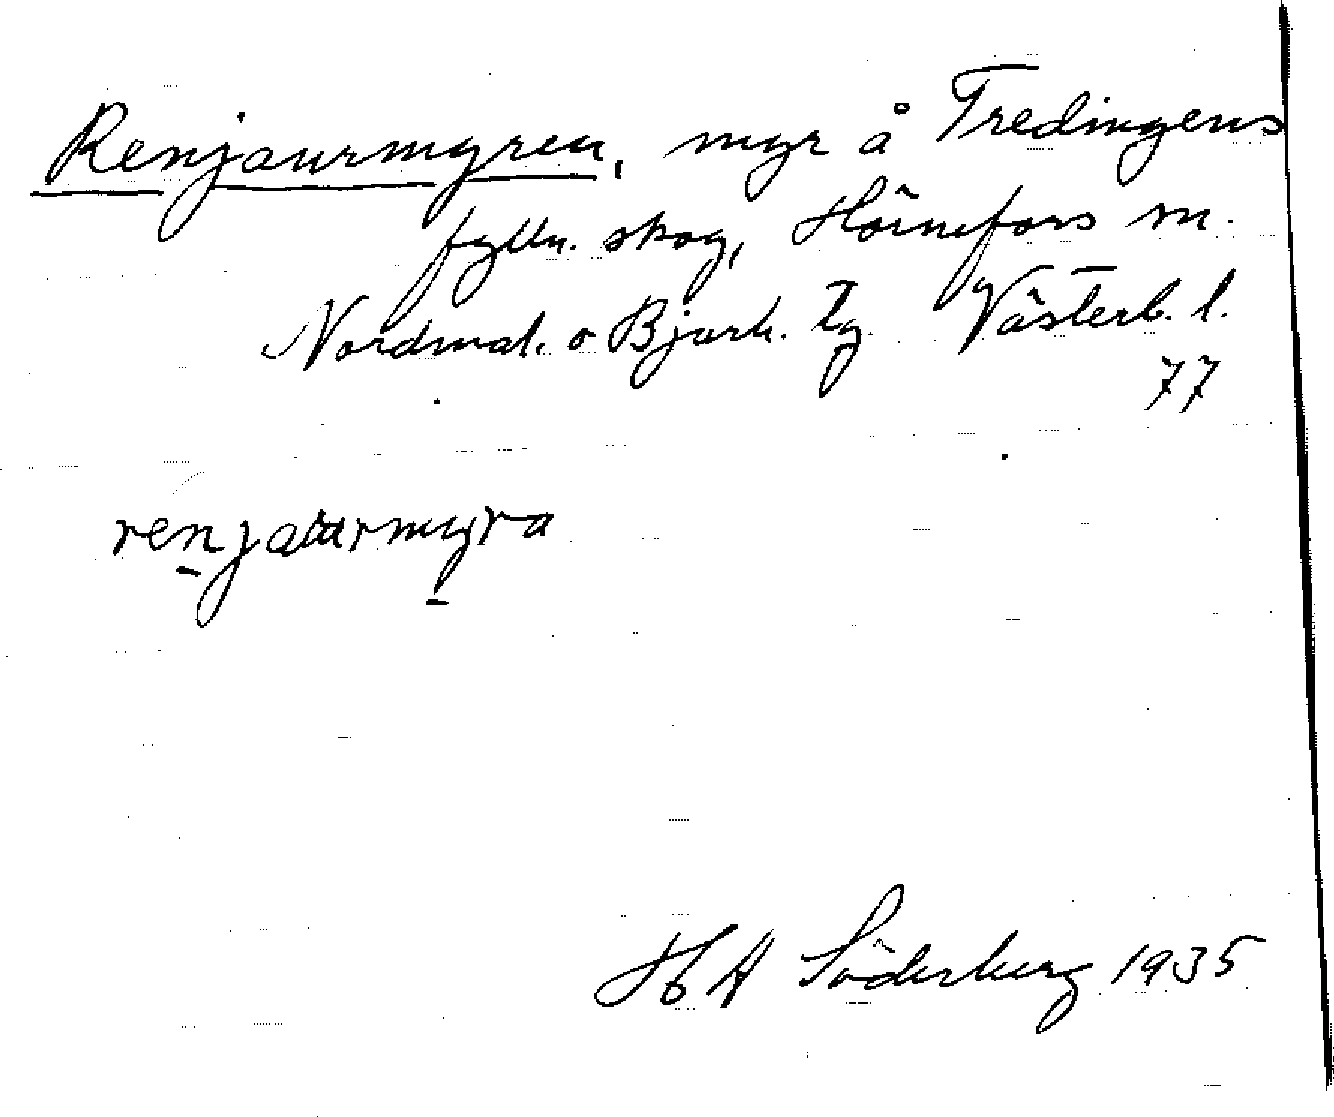 Renjaurmyren, myr å Tredingens
fylln. skog, Hörnefors m.
Nordmal. o Bjurh. tg Västerb. l.
77
renjaurmyra
H A Söderberg 1935